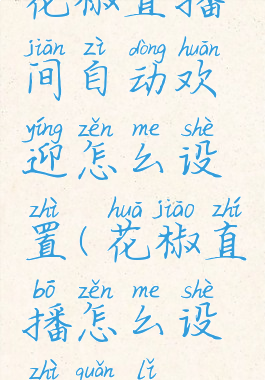 花椒直播
jiān zì dòng huān
间自动欢
yíng zěn me shè
迎怎么设
zhì huā jiāo zhí
置(花椒直
bō zěn me shè
播怎么设
zhì quǎn lǐ